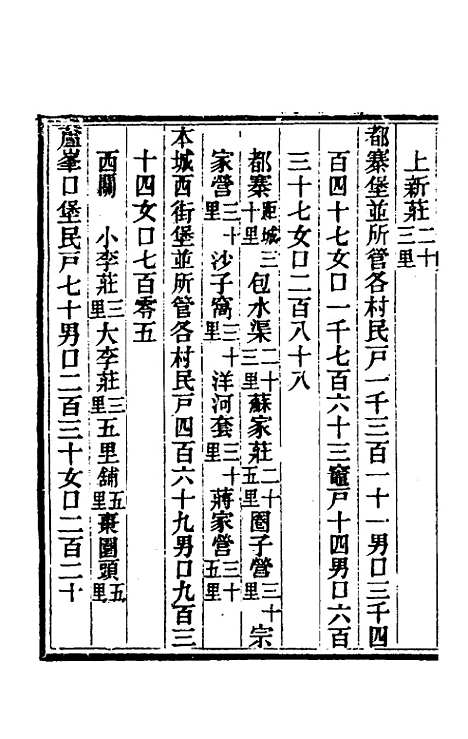 上新莊二十三里
都寨堡並所管各村民戸一千三百一十一男口三千四
百四十七女口一千七百六十三竈戸十四男口六百
三十七女口二百八十八
都寨距城三十里包水渠二十三里蘇家莊二十五里圈子營三十里宗
家營三十里沙子窩三十里洋河套三十里蔣家營三十五里
本城西街堡並所管各村民戸四百六十九男口九百三
十四女口七百零五
西關　小李莊三里大李莊三里五里舖五里棗園頭五里
蘆峯口堡民戸七十男口二百三十女口二百二十